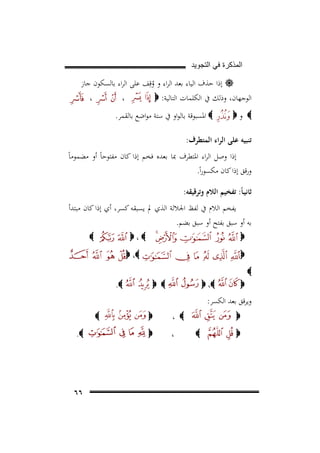 المذكرة في التجويد
۞ إذا حذف الياء بعد الراء ووُقِف على الراء بالسكون جاز
الوجهان، وذلك في الكلمات التالية: ﴿ إِذَا يَسْرِ ﴾، ﴿ أَنْ أَسْرِ ﴾، ﴿ فَأَسْرِ ﴾
و ﴿ وَنُذُرِ ﴾ المسبوقة بالواو في ستة مواضع بالقمر.
تنبيه على الراء المتطرف:
إذا وصل الراء المتطرف بما بعده فخم إذا كان مفتوحاً أو مضموماً
ورقق إذا كان مكسوراً.
ثانياً: تفخيم اللام وترقيقه:
يفخم اللام في لفظ الجلالة الذي لم يسبقه كسر، أي إذا كان مبتدأ
به أو سبق بفتح أو سبق بضم.
﴿ ٱللَّهُ نُورُ ٱلسَّمَٰوَٰتِ وَٱلْأَرْضِ ﴾، ﴿ ٱللَّهُ رَبُّكُمْ ﴾
﴿ ٱللَّهِ ٱلَّذِى لَهُۥ مَا فِى ٱلسَّمَٰوَٰتِ ﴾، ﴿ قُلْ هُوَ ٱللَّهُ أَحَدٌ
﴾
﴿ كَانَ ٱللَّهُ ﴾، ﴿ رَسُولُ ٱللَّهِ ﴾ ﴿ يُرِيدُ ٱللَّهُ ﴾.
ويرقق بعد الكسر:
﴿ وَمَن يَتَّقِ ٱللَّهَ ﴾ ، ﴿ وَمَن يُؤْمِنۢ بِٱللَّهِ ﴾
﴿ قُلِ ٱللَّهُمَّ ﴾ ، ﴿ لِلَّهِ مَا فِى ٱلسَّمَٰوَٰتِ ﴾.
٦٦